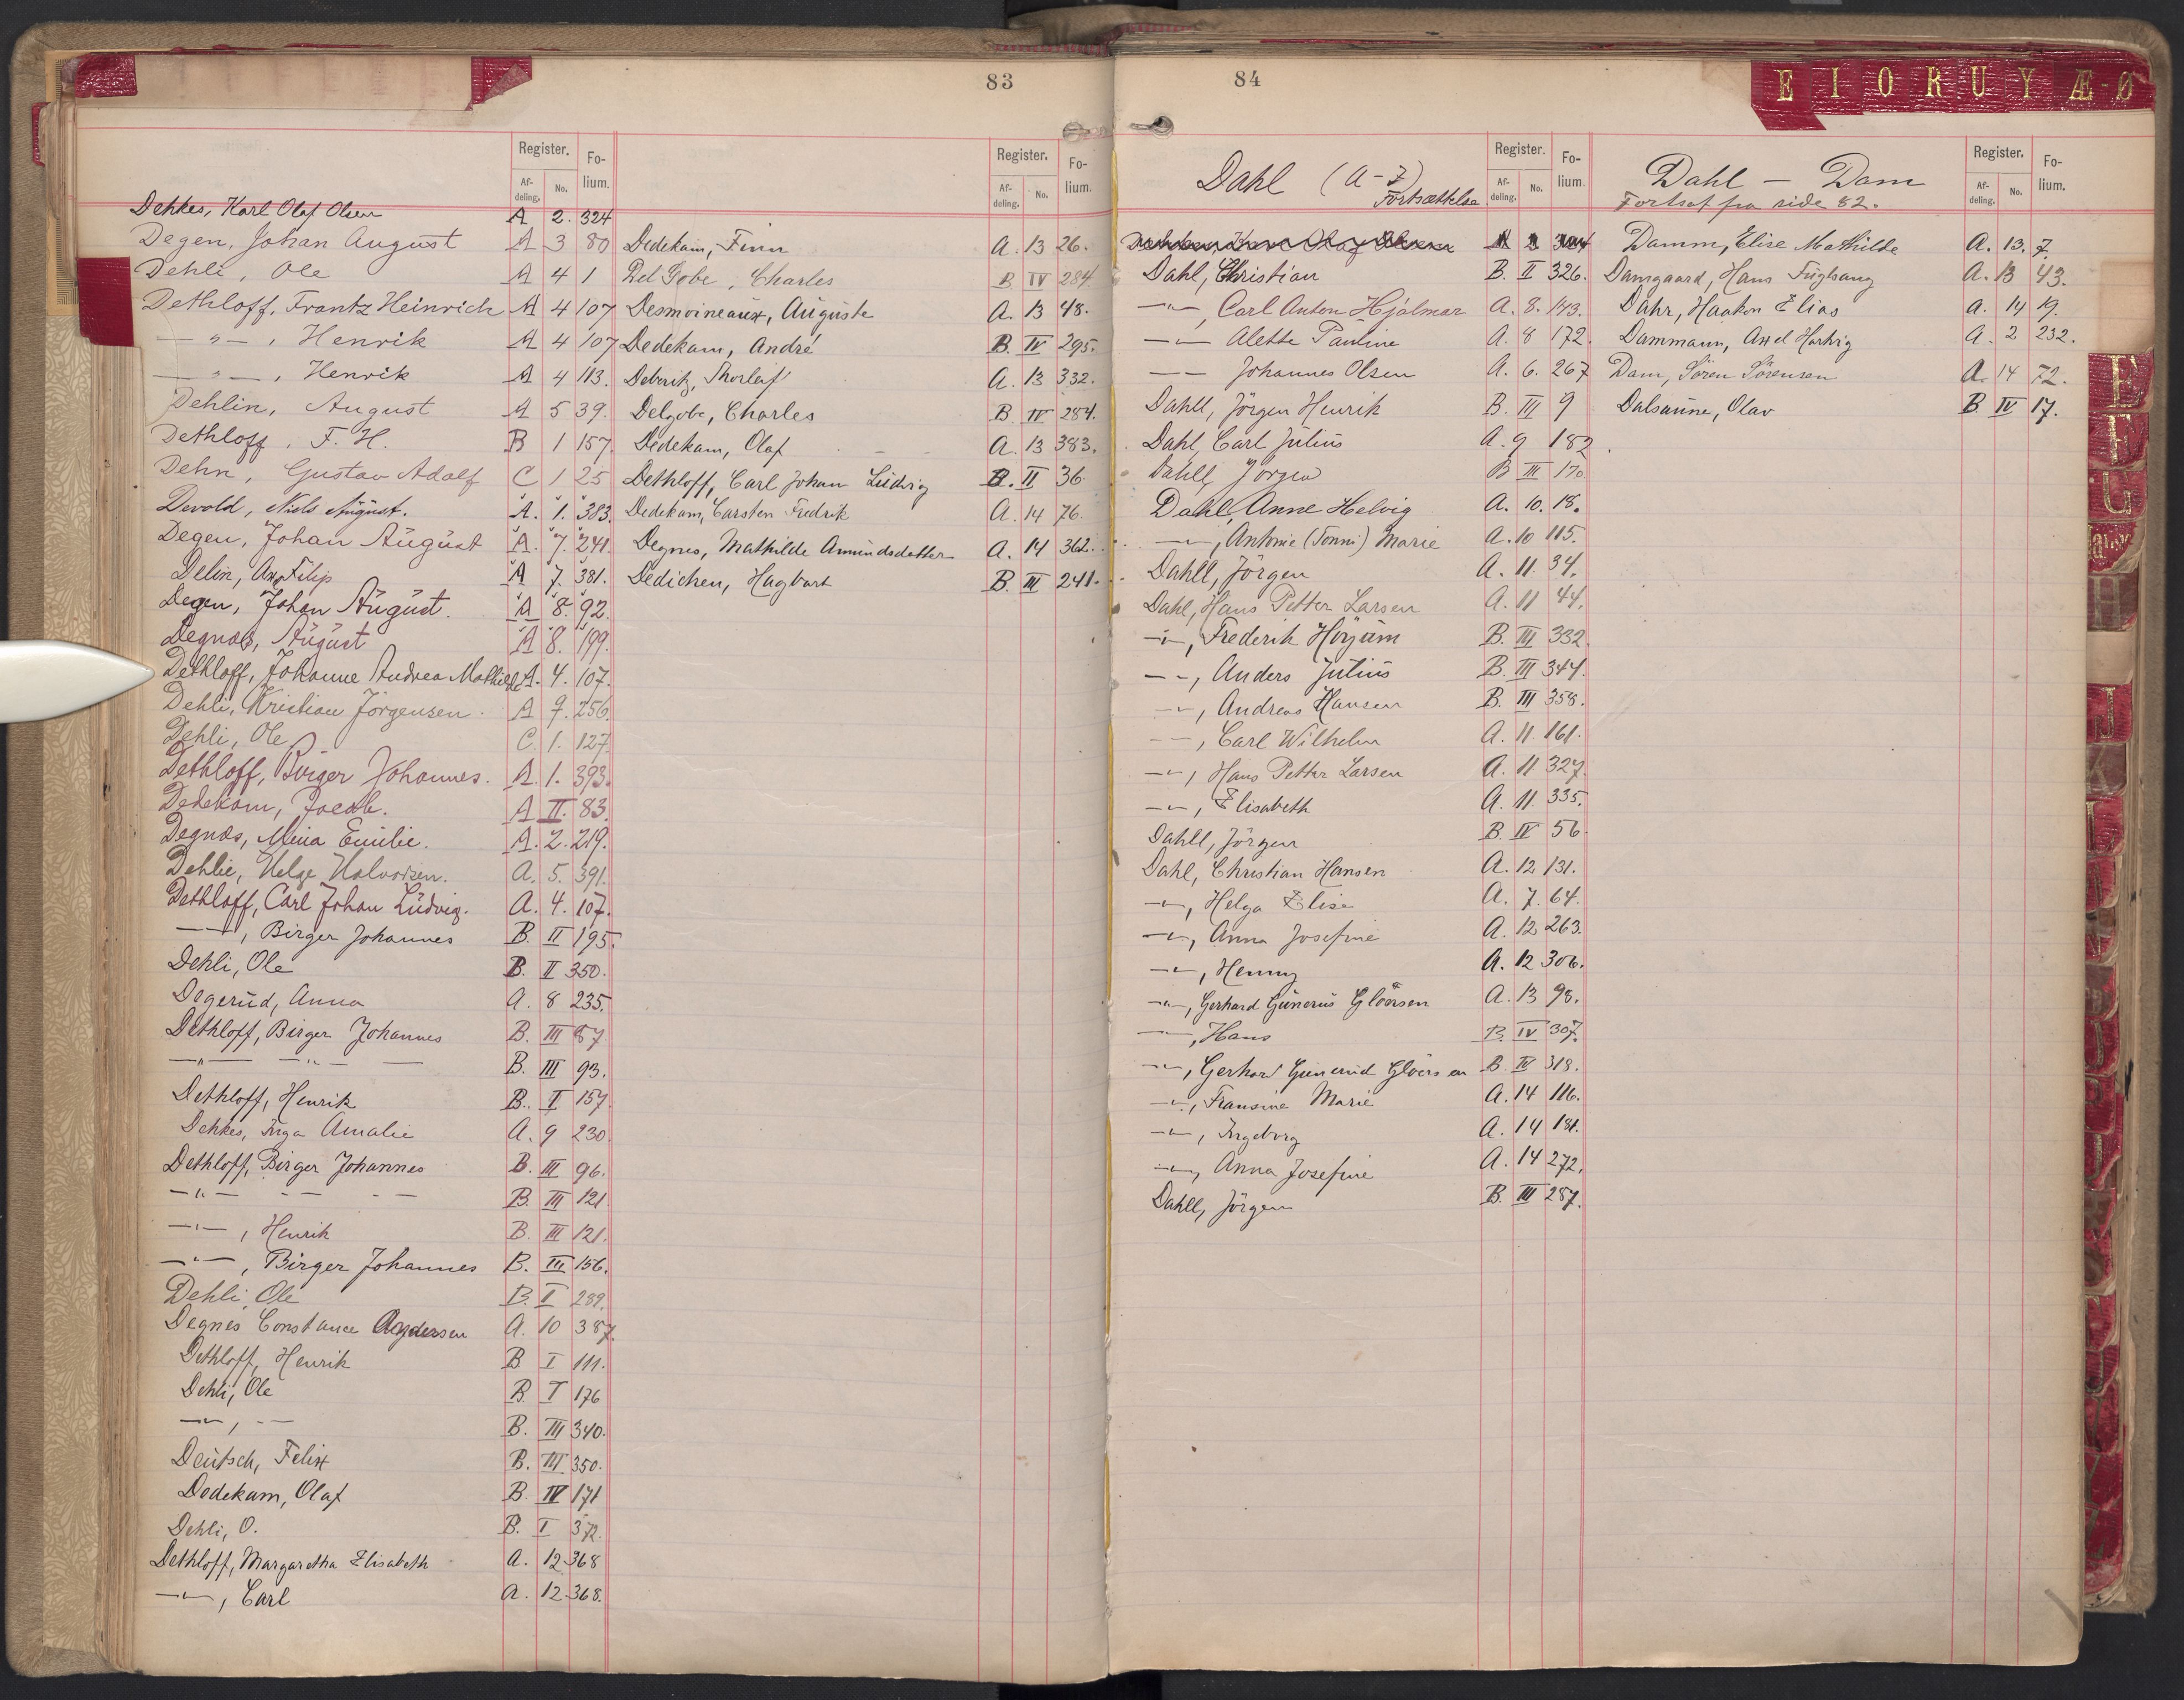 83
Register. Fo-
Af- No. lium.
deling.
Dehkes, Karl Olaf Olsen A 2. 324
Degen, Johan August A 3 80
Dehli, Ole A 4 1
Dethloff, Frantz Heinrich A 4 107
—"—, Henrik A 4 107
—"—, Henrik A 4 113.
Dehlin, August A 5 39.
Dethloff, F. H. B 1 157.
Dehn, Gustav Adolf C 1 25
Devold, Niels August. A. 1. 383.
Degen, Johan August A. 7. 241.
Delin, Axel Filip A 7. 381.
Degen, Johan August. A 8. 92.
Degnæs, August A 8. 199.
Dethloff, Johanne Andrea Mathilde A. 4. 107.
Dehli, Kristian Jörgensen. A 9. 256.
Dehli, Ole C. 1. 127.
Dethloff, Birger Johannes. A. 1. 393.
Dedekam, Jacob. A II. 83.
Degnæs, Mina Emilie. A. 2. 219.
Dehlie, Helge Halvorsen. A. 5. 391.
Dethloff, Carl Johan Ludvig. A. 4. 107.
—"—, Birger Johannes B. II 195.
Dehli, Ole B. II 350.
Degerud, Anna A. 8 235.
Dethloff, Birger Johannes B. III 87.
—"— —"— — B. III 93.
Dethloff, Henrik B. I 157.
Dehkes, Inga Amalie A. 9 230
Dethloff, Birger Johannes B. III 96.
—"— — — B. III 121
—"—, Henrik B. III 121.
—"—, Birger Johannes B. III 156.
Dehli, Ole B. I 289.
Degnes Constance Andersen A. 10 387.
Dethloff, Henrik B I 111.
Dehli, Ole B I 176
—"—, — B. III 340.
Deutsch, Felix B. III 350.
Dedekam, Olaf B. IV 171
Dehli, O. B. I 372.
Dethloff, Margaretha Elisabeth A. 12 368
—"—, Carl A. 12 368.
Register. Fo-
Af- No. lium.
deling.
Dedekam, Finn A. 13 26.
Del Gobe, Charles B IV 284.
Desmoineaux, Auguste A. 13 48.
Dedekam, André B. IV 295.
Deberitz, Thorleif A. 13 332.
Delgobe, Charles B. IV 284.
Dedekam, Olaf A. 13 383.
Dethloff, Carl Johan Ludvig B. II 36
Dedekam, Carsten Fredrik A. 14 76.
Degnes, Mathilde Amundsdatter A. 14 362.
Dedichen, Hagbart B. III 241.
84
E I O R U Y Æ-Ø
Register. Fo-
Af- No. lium.
deling.
Dahl (A-Z)
Fortsættelse.
Dahl, Christian B. II 326.
—"—, Carl Anton Hjalmar A. 8. 143.
—"— Alette Pauline A. 8 172.
—— Johannes Olsen A. 6. 267
Dahll, Jörgen Henrik B. III 9
Dahl, Carl Julius A. 9 182
Dahll, Jörgen B III 170
Dahl, Anne Helvig A. 10. 18.
—"—, Antonie (Tonni) Marie A. 10 115.
Dahll, Jörgen A. 11. 34.
Dahl, Hans Petter Larsen A. 11 44.
—"—, Frederik Horjum B. III 332.
—"—, Anders Julius B. III 344.
—"—, Andreas Hansen B. III 358.
—"—, Carl Wilhelm A. 11. 161.
—"—, Hans Petter Larsen A. 11 327.
—"—, Elisabeth A. 11. 335.
Dahll, Jörgen B. IV 56.
Dahl, Christian Hansen A. 12 131.
—"—, Helga Elise A. 7. 64.
—"—, Anna Josefine A. 12 263.
—"—, Henny A. 12 306.
—"—, Gerhard Gunerius Gloersen A. 13 98.
—"—, Hans B. IV 307.
—"—, Gerhard Gunerius Gloersen B. IV 318.
—"—, Fransine Marie A. 14 116.
—"—, Ingeborg A. 14 181.
—"—, Anna Josefine A. 14 272.
Dahll, Jörgen B. III 287.
Register. Fo-
Af- No. lium.
deling.
Dahl — Dam
Fortsat fra side 82.
Damm, Elise Mathilde A. 13. 7.
Damgaard, Hans Fuglsang A. 13 43.
Dahr, Haakon Elias A. 14 19.
Dammann, Axel Hartvig A. 2 232.
Dam, Sören Sörensen A. 14 72.
Dalsaune, Olav B. IV 17.